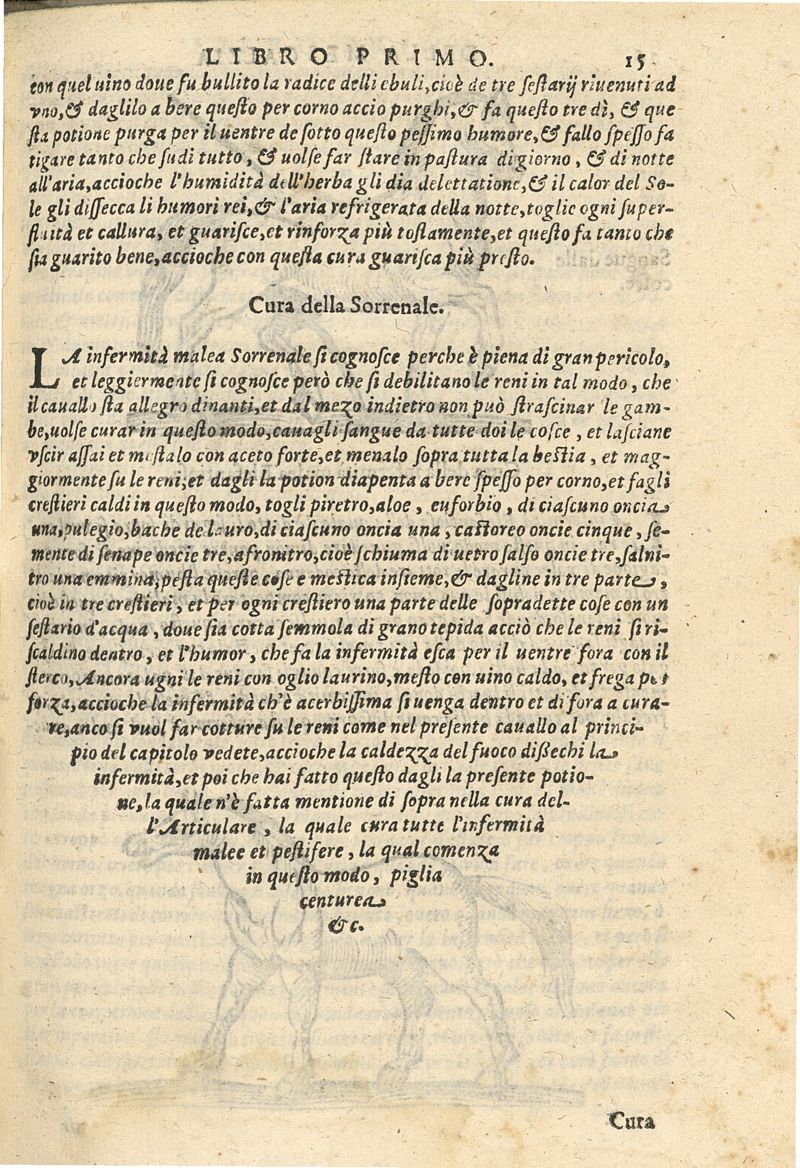 LIBRO PRIMO. 15
con quel uino doue fu bullito la radice delli ebuli, cioè de tre sestarij riuenuti ad
vno, & daglilo a bere questo per corno accio purghi, & fa questo tre dì, & que
sta potione purga per il uentre de sotto questo pessimo humore, & fallo spesso fa
tigare tanto che sudi tutto, & uolse far stare in pastura di giorno, & di notte
all'aria, accioche l'humidità dell'herba gli dia delettatione, & il calor del So-
le gli dissecca li humori rei, & l'aria refrigerata della notte, toglie ogni super-
fluità et callura, et guarisce, et rinforza più tostamente, et questo fa tanto che
sia guarito bene, accioche con questa cura guarisca più presto.
Cura della Sorrenale.
LA infermità malea Sorrenale si cognosce perche è piena di gran pericolo,
et leggiermente si cognosce però che si debilitano le reni in tal modo, che
il cauallo sta allegro dinanti, et dal mezo indietro non può strascinar le gam-
be, uolse curar in questo modo, cauagli sangue da tutte doi le cosce, et lasciane
vscir assai et mestalo con aceto forte, et menalo sopra tutta la bestia, et mag-
giormente su le reni, et dagli la potion diapenta a bere spesso per corno, et fagli
crestieri caldi in questo modo, togli piretro, aloe, euforbio, di ciascuno oncia
una, pulegio, bache de lauro, di ciascuno oncia una, castoreo oncie cinque, se-
mente di senape oncie tre, afronitro, cioè schiuma di uetro salso oncie tre, salni-
tro una emmina, pesta queste cose e mestica insieme, & dagline in tre parte,
cioè in tre crestieri, et per ogni crestiero una parte delle sopradette cose con un
sestario d'acqua, doue sia cotta semmola di grano tepida acciò che le reni si ri-
scaldino dentro, et l'humor, che fa la infermità esca per il uentre fora con il
sterco, Ancora ugni le reni con oglio laurino, mesto con uino caldo, et frega per
forza, accioche la infermità ch'è acerbissima si uenga dentro et di fora a cura-
re, anco si vuol far cotture su le reni come nel presente cauallo al princi-
pio del capitolo vedete, accioche la caldezza del fuoco dißechi la
infermità, et poi che hai fatto questo dagli la presente potio-
ne, la quale n'è fatta mentione di sopra nella cura del-
l'Articulare, la quale cura tutte l'infermità
malee et pestifere, la qual comenza
in questo modo, piglia
centurea
&c.
Cura